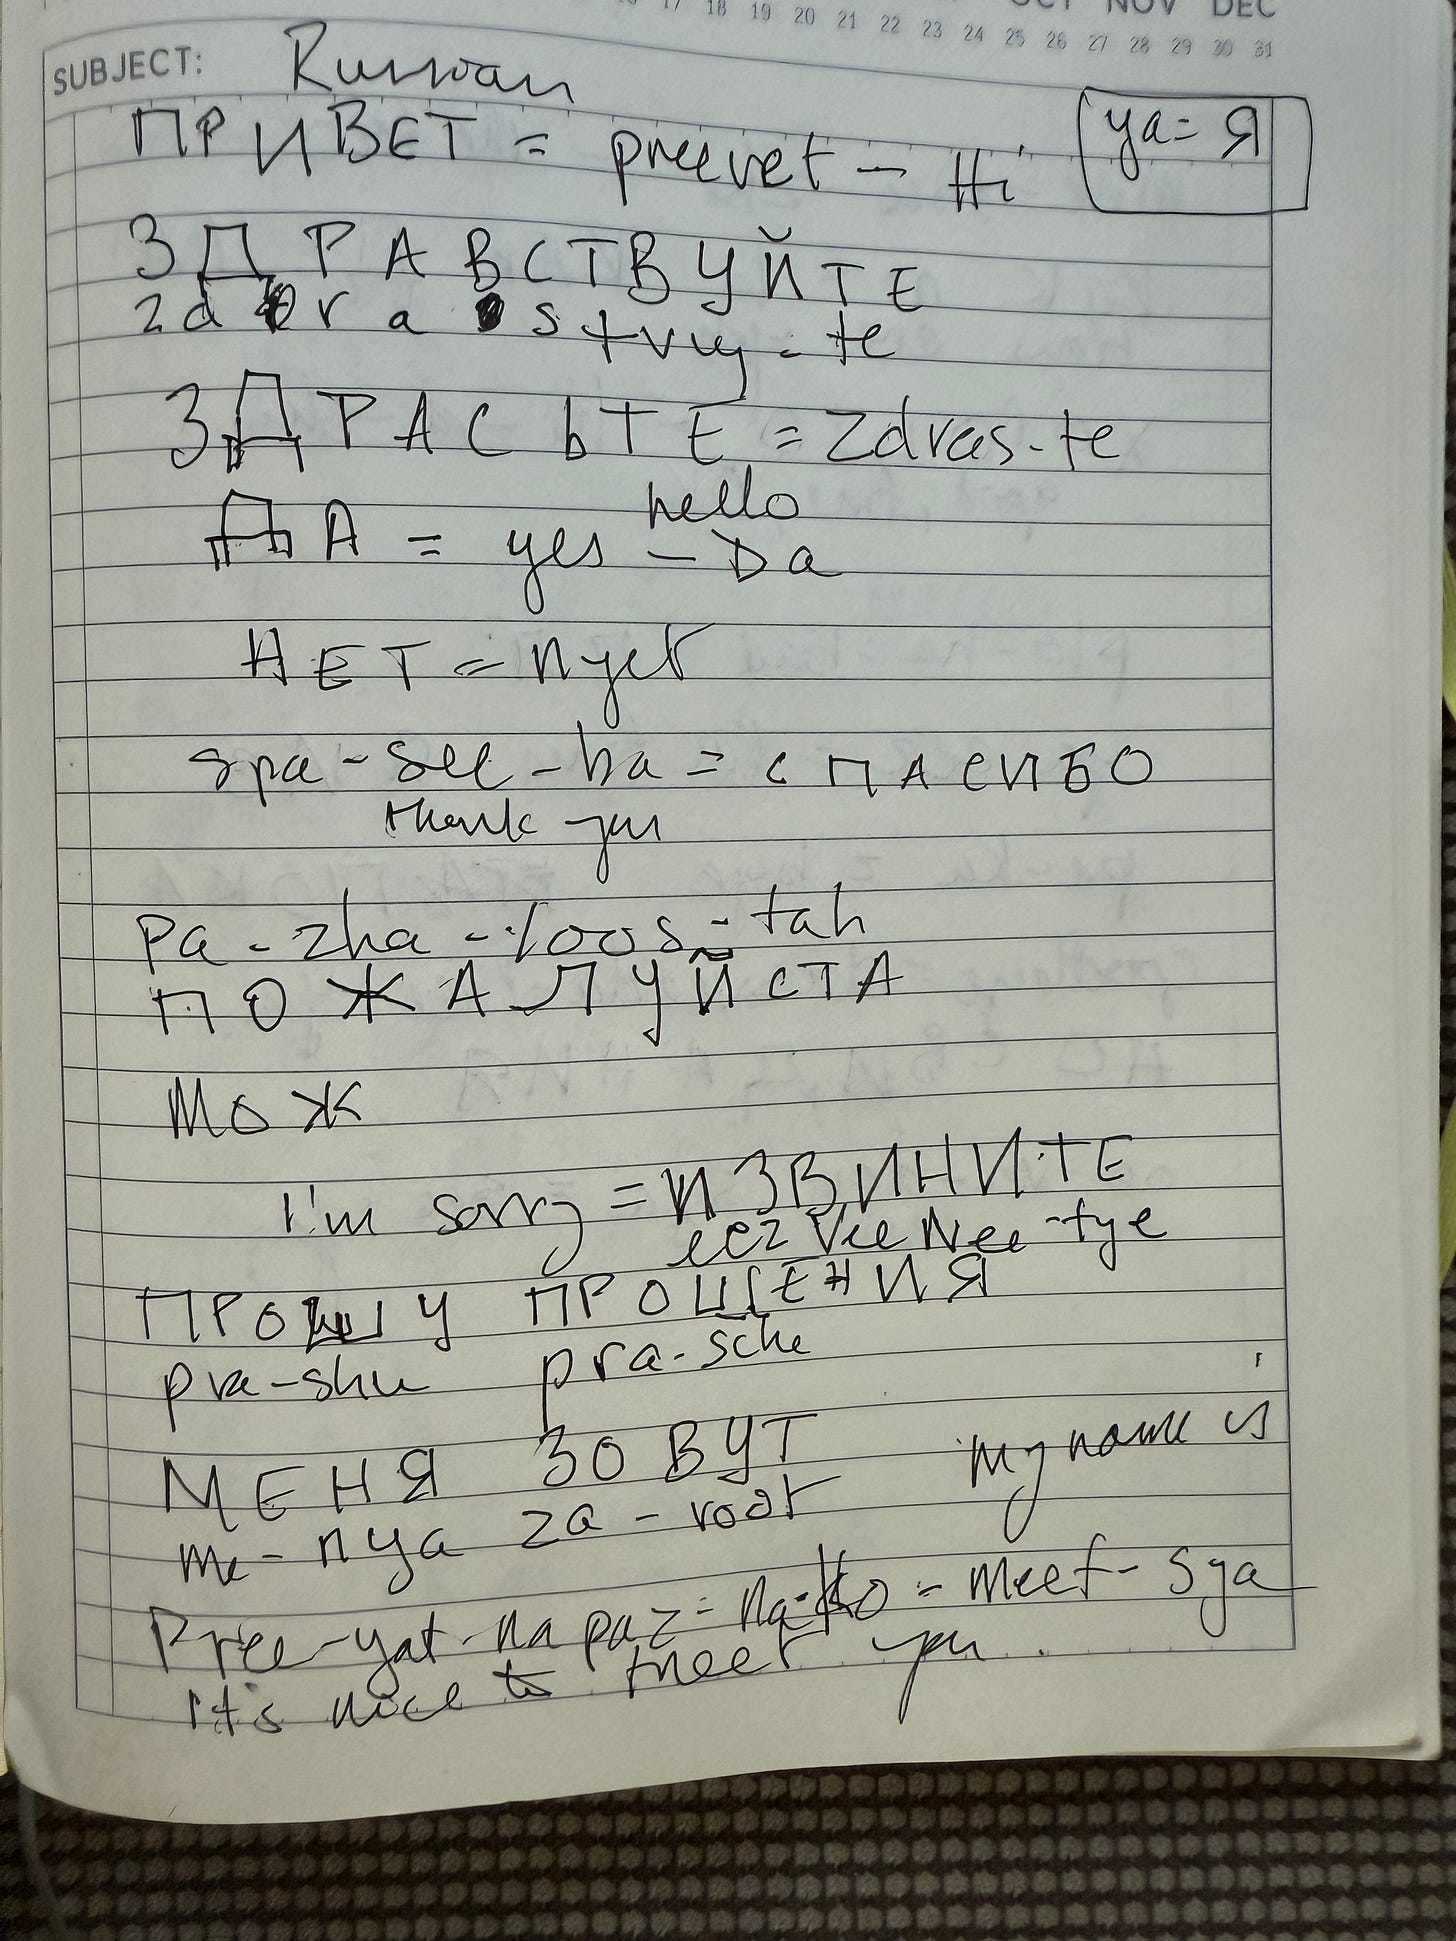 17 18 19 20 21 22 23 24 25 26 27 28 29 30 31
OCT NOV DEC
SUBJECT: Russian
ПРИВЕТ = preevet - Hi
ya = Я
ЗДРАВСТВУЙТЕ
zdra stvuy-te
ЗДРАСЬТЕ = Zdras-te
hello
ДА = yes - Da
НЕТ = nyet
spa-see-ba = СПАСИБО
thank you
Pa-zha-loos-tah
ПОЖАЛУЙСТА
МОЖ
I'm sorry = ИЗВИНИТЕ
eez Vee Nee-tye
ПРОШУ ПРОЩЕНИЯ
pra-shu pra-sche
МЕНЯ ЗОВУТ my name is
me-nya za-voot
Pree-yat-na paz-na-ko-meet-sya
It's nice to meet you.